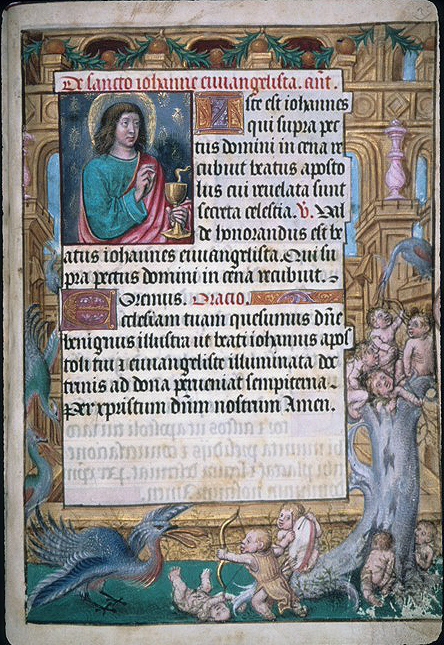 De sancto iohanne euuangelista. ant.
Iste est iohannes
qui supra pec
tus domini in cena re
cubuit beatus aposto
lus cui reuelata sunt
secreta celestia. v. Val
de honorandus est be
atus iohannes euuangelista. Qui su
pra pectus domini in cena recubuit.
Oremus. Oracio.
Ecclesiam tuam quesumus dñe
benignus illustra ut beati iohannis apos
toli tui ⁊ euuangeliste illuminata doc
trinis ad dona perueniat sempiterna.
Per xpistum dñm nostrum Amen.